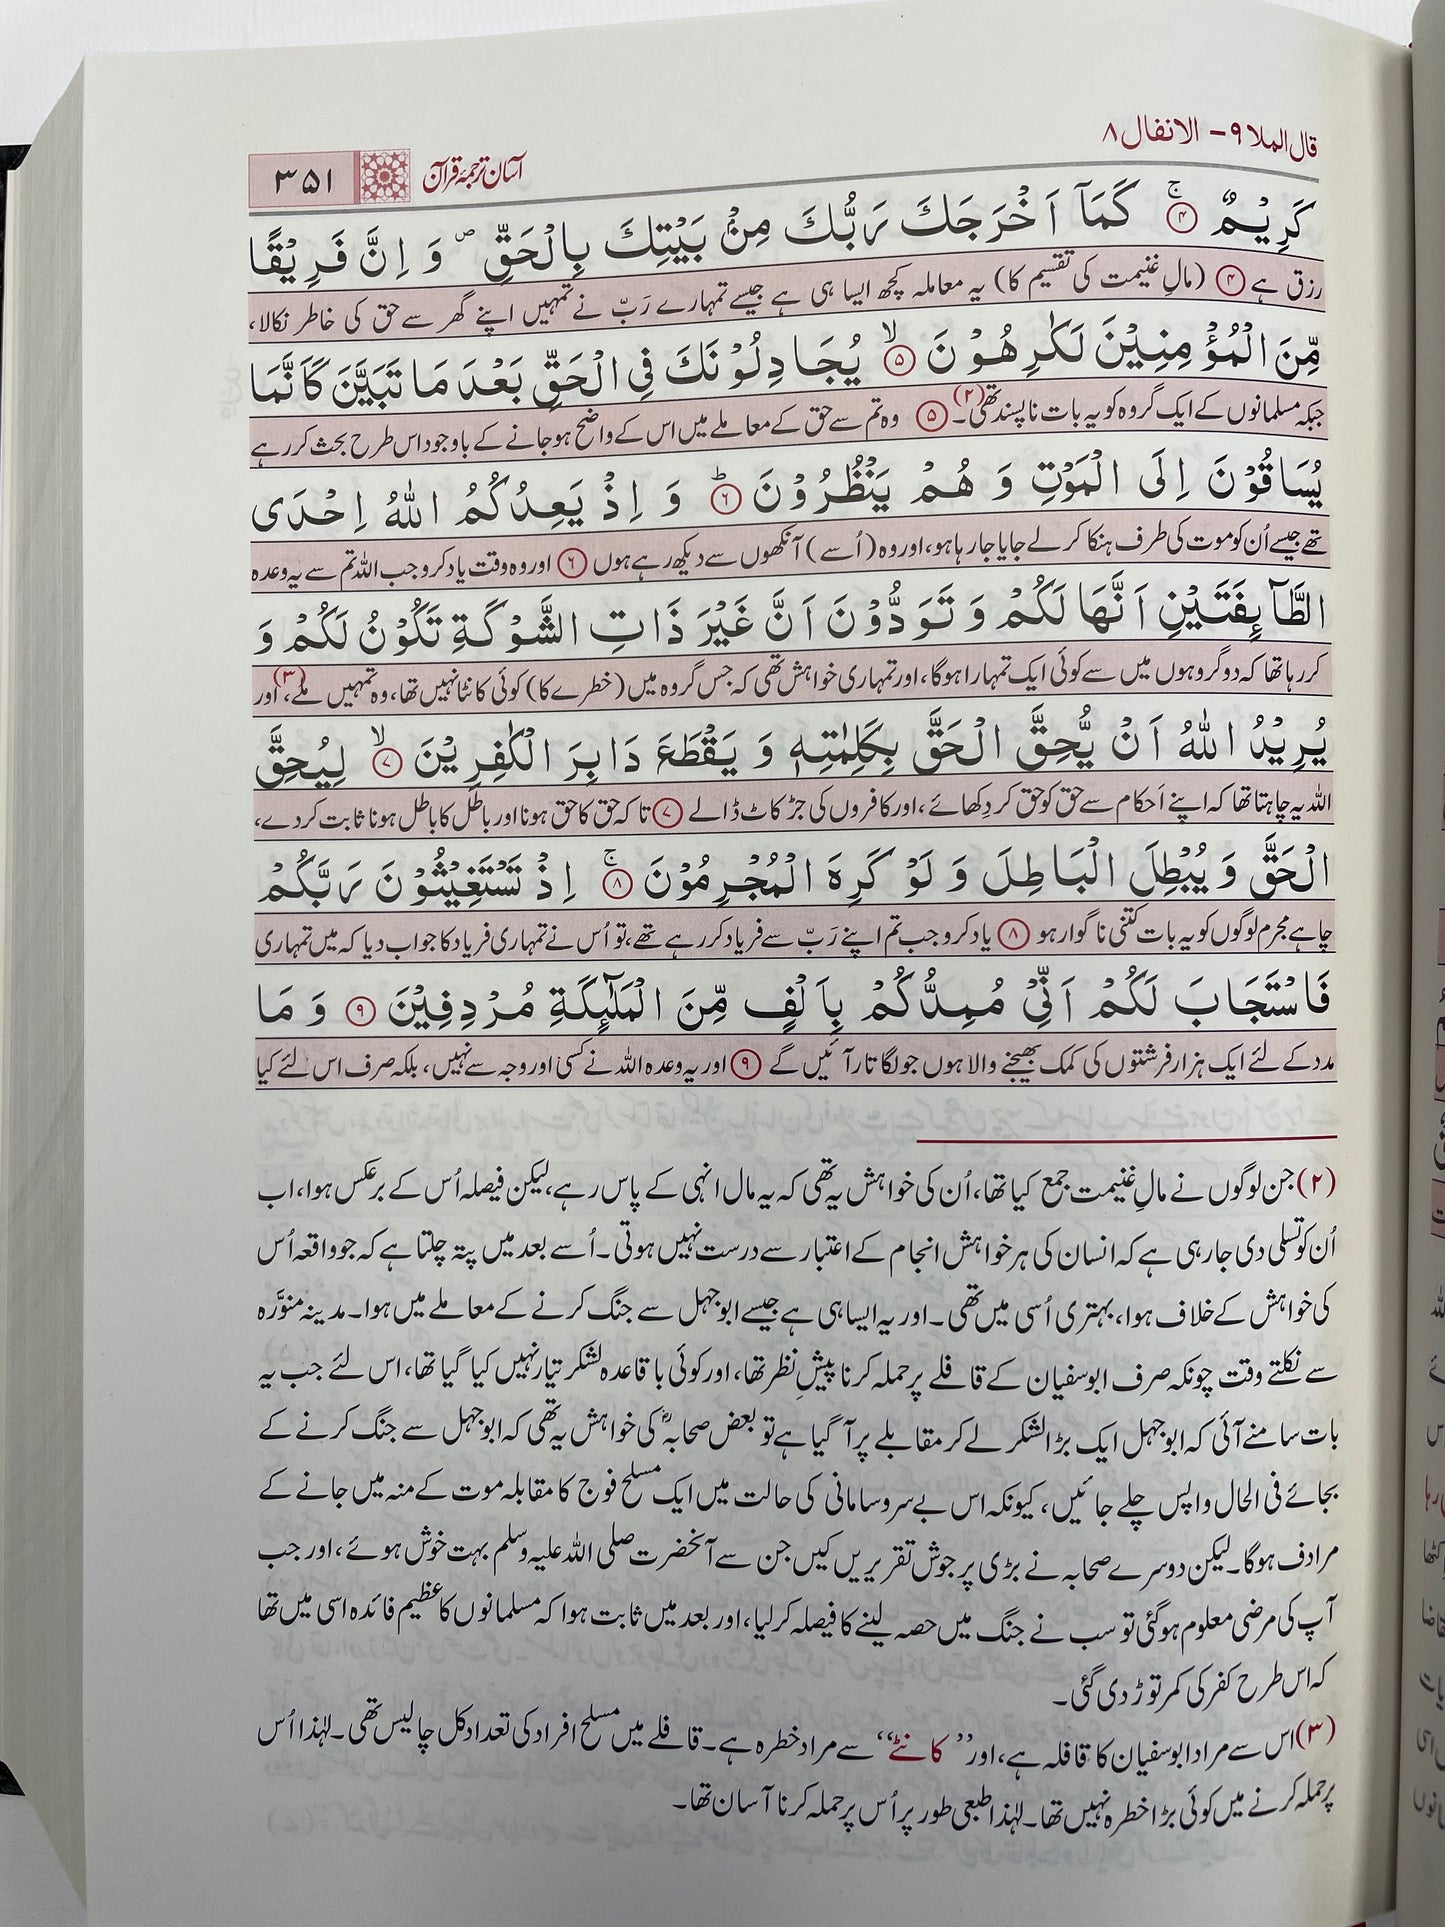 قال الملا ۹ – الانفال ۸
آسان ترجمۂ قرآن
۳۵۱
كَرِيْمٌ ۴ ۚ كَمَاۤ اَخْرَجَكَ رَبُّكَ مِنْۢ بَيْتِكَ بِالْحَقِّ ۪ وَ اِنَّ فَرِيْقًا
رزق ہے ۴ (مالِ غنیمت کی تقسیم کا) یہ معاملہ کچھ ایسا ہی ہے جیسے تمہارے رَبّ نے تمہیں اپنے گھر سے حق کی خاطر نکالا،
مِّنَ الْمُؤْمِنِيْنَ لَكٰرِهُوْنَ ۵ ۙ يُجَادِلُوْنَكَ فِي الْحَقِّ بَعْدَ مَا تَبَيَّنَ كَاَنَّمَا
جبکہ مسلمانوں کے ایک گروہ کو یہ بات ناپسند تھی۔(۲) ۵ وہ تم سے حق کے معاملے میں اس کے واضح ہو جانے کے باوجود اس طرح بحث کر رہے
يُسَاقُوْنَ اِلَى الْمَوْتِ وَ هُمْ يَنْظُرُوْنَ ۶ ؕ وَ اِذْ يَعِدُكُمُ اللّٰهُ اِحْدَى
تھے جیسے اُن کو موت کی طرف ہنکا کر لے جایا جارہا ہو، اور وہ (اُسے) آنکھوں سے دیکھ رہے ہوں ۶ اور وہ وقت یاد کرو جب اللہ تم سے یہ وعدہ
الطَّآىِٕفَتَيْنِ اَنَّهَا لَكُمْ وَ تَوَدُّوْنَ اَنَّ غَيْرَ ذَاتِ الشَّوْكَةِ تَكُوْنُ لَكُمْ وَ
کر رہا تھا کہ دو گروہوں میں سے کوئی ایک تمہارا ہوگا، اور تمہاری خواہش تھی کہ جس گروہ میں (خطرے کا) کوئی کانٹا نہیں تھا، وہ تمہیں ملے،(۳) اور
يُرِيْدُ اللّٰهُ اَنْ يُّحِقَّ الْحَقَّ بِكَلِمٰتِهٖ وَ يَقْطَعَ دَابِرَ الْكٰفِرِيْنَ ۷ ۙ لِيُحِقَّ
اللہ یہ چاہتا تھا کہ اپنے اَحکام سے حق کو حق کر دِکھائے، اور کافروں کی جڑ کاٹ ڈالے ۷ تاکہ حق کا حق ہونا اور باطل کا باطل ہونا ثابت کر دے،
الْحَقَّ وَ يُبْطِلَ الْبَاطِلَ وَ لَوْ كَرِهَ الْمُجْرِمُوْنَ ۸ ۚ اِذْ تَسْتَغِيْثُوْنَ رَبَّكُمْ
چاہے مجرم لوگوں کو یہ بات کتنی ناگوار ہو ۸ یاد کرو جب تم اپنے رَبّ سے فریاد کر رہے تھے، تو اُس نے تمہاری فریاد کا جواب دیا کہ میں تمہاری
فَاسْتَجَابَ لَكُمْ اَنِّيْ مُمِدُّكُمْ بِاَلْفٍ مِّنَ الْمَلٰٓىِٕكَةِ مُرْدِفِيْنَ ۹ وَ مَا
مدد کے لئے ایک ہزار فرشتوں کی کمک بھیجنے والا ہوں جو لگاتار آئیں گے ۹ اور یہ وعدہ اللہ نے کسی اور وجہ سے نہیں، بلکہ صرف اس لئے کیا
(۲) جن لوگوں نے مالِ غنیمت جمع کیا تھا، اُن کی خواہش یہ تھی کہ یہ مال انہی کے پاس رہے، لیکن فیصلہ اُس کے برعکس ہوا، اب
اُن کو تسلی دی جارہی ہے کہ انسان کی ہر خواہش انجام کے اعتبار سے درست نہیں ہوتی۔ اُسے بعد میں پتہ چلتا ہے کہ جو واقعہ اُس
کی خواہش کے خلاف ہوا، بہتری اُسی میں تھی۔ اور یہ ایسا ہی ہے جیسے ابوجہل سے جنگ کرنے کے معاملے میں ہوا۔ مدینہ منوَّرہ
سے نکلتے وقت چونکہ صرف ابوسفیان کے قافلے پر حملہ کرنا پیشِ نظر تھا، اور کوئی باقاعدہ لشکر تیار نہیں کیا گیا تھا، اس لئے جب یہ
بات سامنے آئی کہ ابوجہل ایک بڑا لشکر لے کر مقابلے پر آگیا ہے تو بعض صحابہؓ کی خواہش یہ تھی کہ ابوجہل سے جنگ کرنے کے
بجائے فی الحال واپس چلے جائیں، کیونکہ اس بے سروسامانی کی حالت میں ایک مسلح فوج کا مقابلہ موت کے منہ میں جانے کے
مرادف ہوگا۔ لیکن دوسرے صحابہ نے بڑی پرجوش تقریریں کیں جن سے آنحضرت صلی اللہ علیہ وسلم بہت خوش ہوئے، اور جب
آپ کی مرضی معلوم ہوگئی تو سب نے جنگ میں حصہ لینے کا فیصلہ کرلیا، اور بعد میں ثابت ہوا کہ مسلمانوں کا عظیم فائدہ اسی میں تھا
کہ اس طرح کفر کی کمر توڑ دی گئی۔
(۳) اس سے مراد ابوسفیان کا قافلہ ہے، اور ”کانٹے“ سے مراد خطرہ ہے۔ قافلے میں مسلح افراد کی تعداد کل چالیس تھی۔ لہٰذا اُس
پر حملہ کرنے میں کوئی بڑا خطرہ نہیں تھا۔ لہٰذا طبعی طور پر اُس پر حملہ کرنا آسان تھا۔